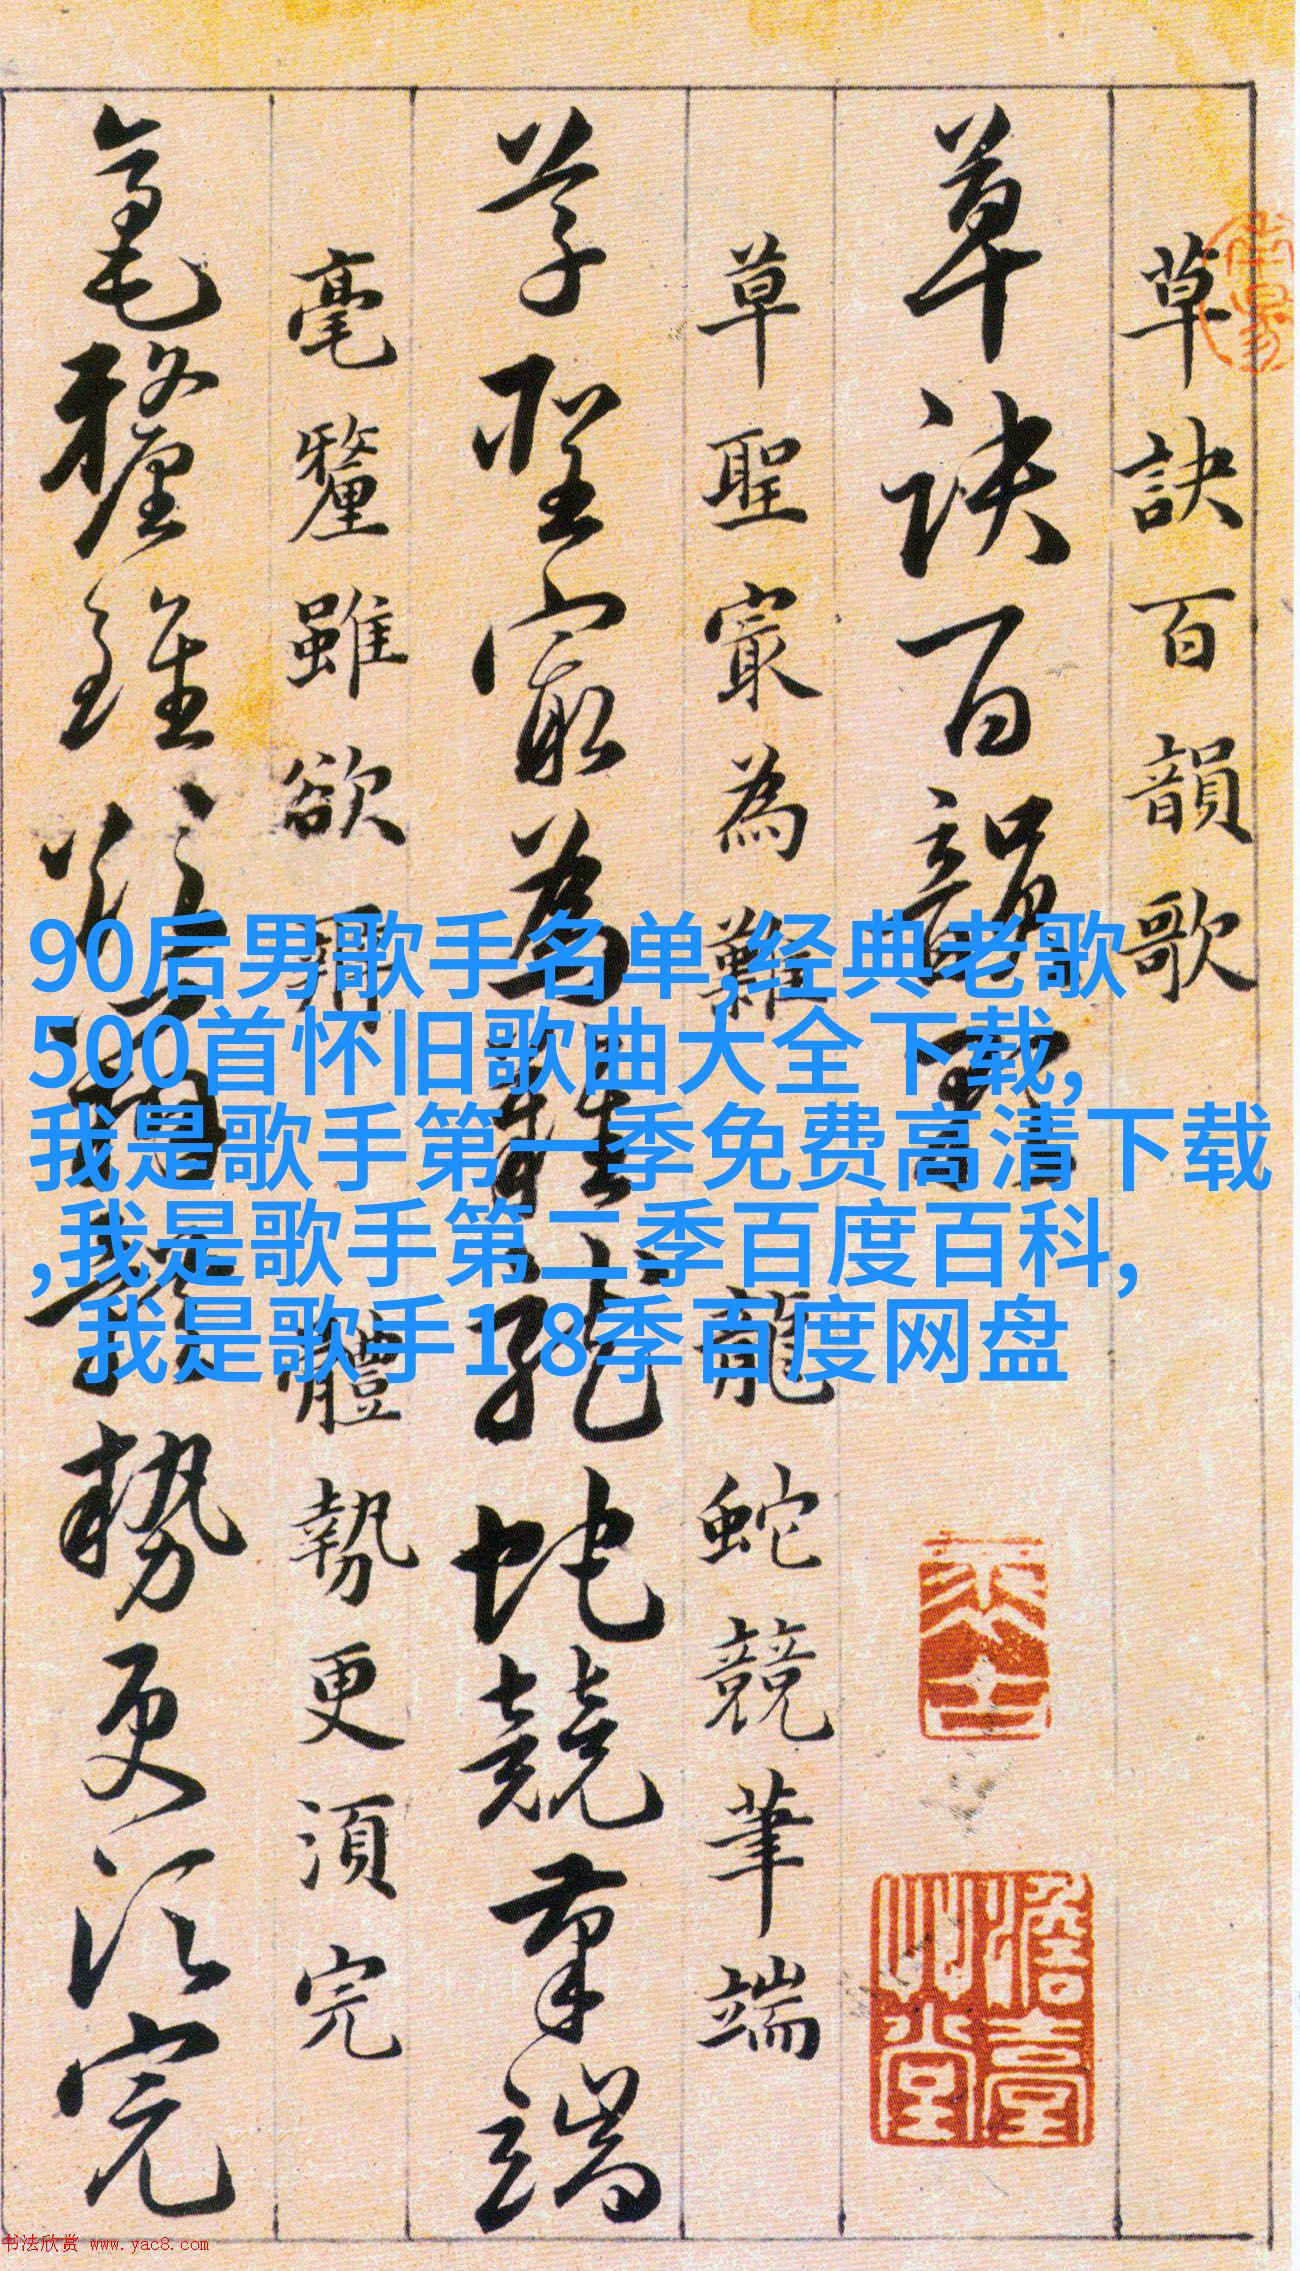 草訣百韻歌
草诀百韵歌
草聖冣為難龍蛇競筆端
草聖冣為難龍蛇競筆端
毫釐雖欲體勢更須完
毫釐雖欲勢更须完
90后男歌手名单,经典老歌
500首怀旧歌曲大全下载,
我是歌手第一季免费高清下载
,我是歌手第二季百度百科,
我是歌手1-8季百度网盘
书法欣赏 www.yac8.com